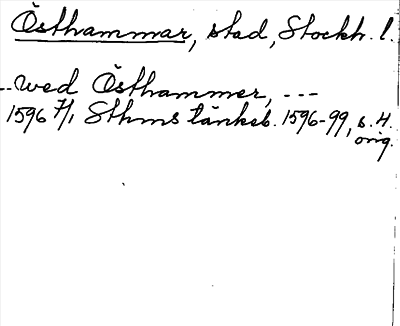 Östhammar, stad, Stockh. l.
--wed Östhammer, ---
1596 7/1 Sthms tänkeb. 1596-99, s. 4.
orig.